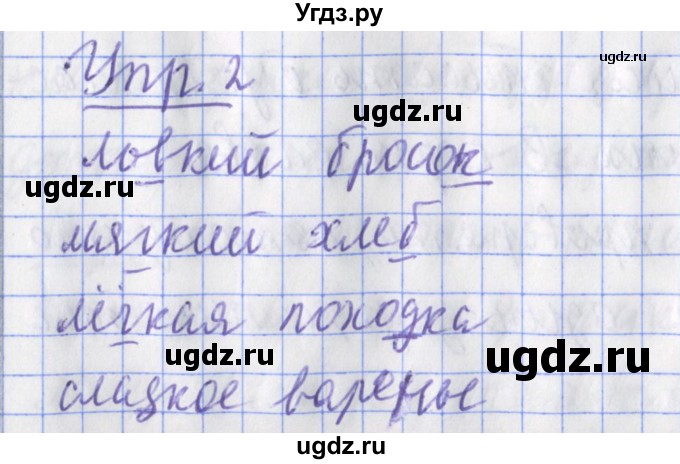 Угдз.ру
ugdz.ru
Упр. 2
ugdz.ru
ugdz.ru
ловкий бросок
ugdz.ru
мягкий хлеб
ugdz.ru
лёгкая походка
ugdz.ru
ugdz.ru
сладкое варенье
ugdz.ru
ugdz.ru